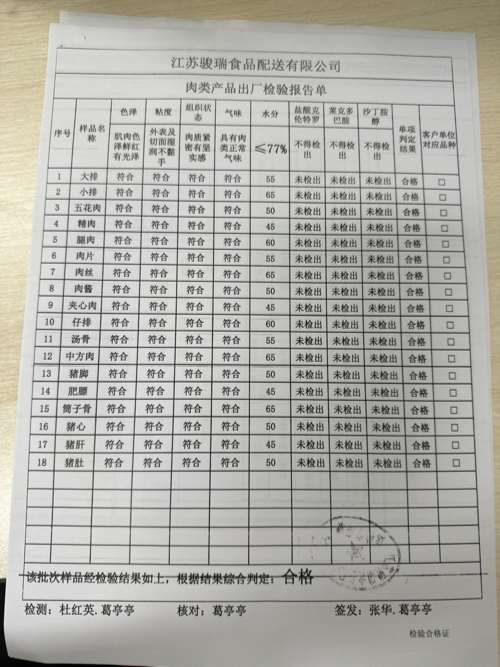 江苏骏瑞食品配送有限公司
肉类产品出厂检验报告单
序号 样品名称 色泽 粘度 组织状态 气味 水分 盐酸克伦特罗 莱克多巴胺 沙丁胺醇 单项判定结果 客户单位对应品种
肌肉色泽鲜红有光泽 外表及切面湿润不黏手 肉质紧密有坚实感 具有肉类正常气味 ≤77% 不得检出 不得检出 不得检出
1 大排 符合 符合 符合 符合 55 未检出 未检出 未检出 合格 □
2 小排 符合 符合 符合 符合 65 未检出 未检出 未检出 合格 □
3 五花肉 符合 符合 符合 符合 50 未检出 未检出 未检出 合格 □
4 精肉 符合 符合 符合 符合 45 未检出 未检出 未检出 合格 □
5 腿肉 符合 符合 符合 符合 60 未检出 未检出 未检出 合格 □
6 肉片 符合 符合 符合 符合 55 未检出 未检出 未检出 合格 □
7 肉丝 符合 符合 符合 符合 65 未检出 未检出 未检出 合格 □
8 肉酱 符合 符合 符合 符合 50 未检出 未检出 未检出 合格 □
9 夹心肉 符合 符合 符合 符合 45 未检出 未检出 未检出 合格 □
10 仔排 符合 符合 符合 符合 60 未检出 未检出 未检出 合格 □
11 汤骨 符合 符合 符合 符合 55 未检出 未检出 未检出 合格 □
12 中方肉 符合 符合 符合 符合 65 未检出 未检出 未检出 合格 □
13 猪脚 符合 符合 符合 符合 50 未检出 未检出 未检出 合格 □
14 肥膘 符合 符合 符合 符合 45 未检出 未检出 未检出 合格 □
15 筒子骨 符合 符合 符合 符合 65 未检出 未检出 未检出 合格 □
16 猪心 符合 符合 符合 符合 50 未检出 未检出 未检出 合格 □
17 猪肝 符合 符合 符合 符合 45 未检出 未检出 未检出 合格 □
18 猪肚 符合 符合 符合 符合 50 未检出 未检出 未检出 合格 □
该批次样品经检验结果如上，根据结果综合判定：合格
检测：杜红英.葛亭亭 核对：葛亭亭 签发：张华.葛亭亭
检验合格证